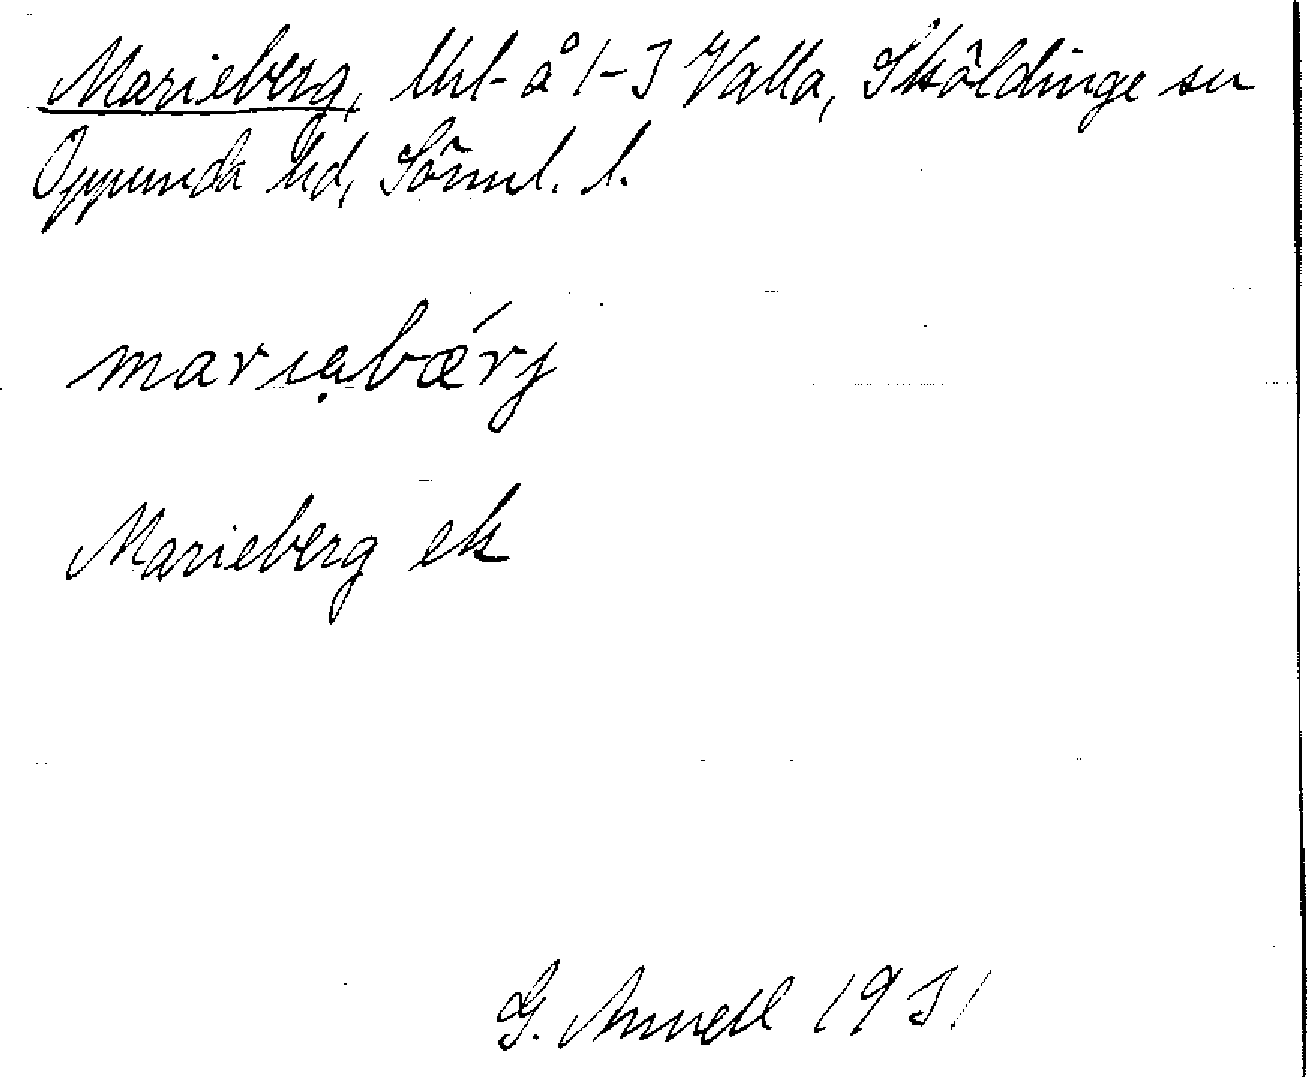 Marieberg, lht å 1-3 Valla, Sköldinge sn
Oppunda hd, Sörml. l.
mariabǽrj
Marieberg ek
G. Annell 1931